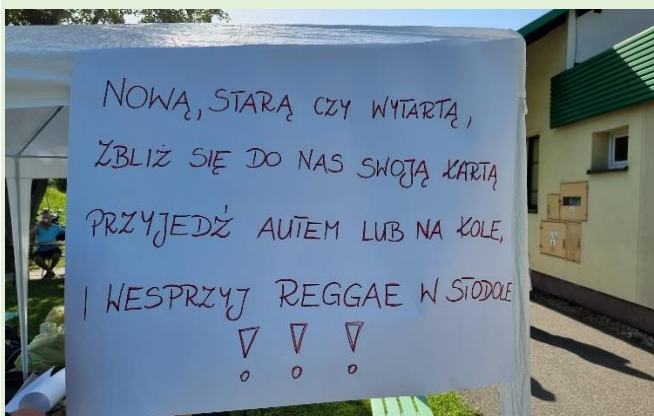 NOWĄ, STARĄ CZY WYTARTĄ,
ZBLIŻ SIĘ DO NAS SWOJĄ KARTĄ
PRZYJEDŹ AUTEM LUB NA KOLE,
I WESPRZYJ REGGAE W STODOLE
!!!